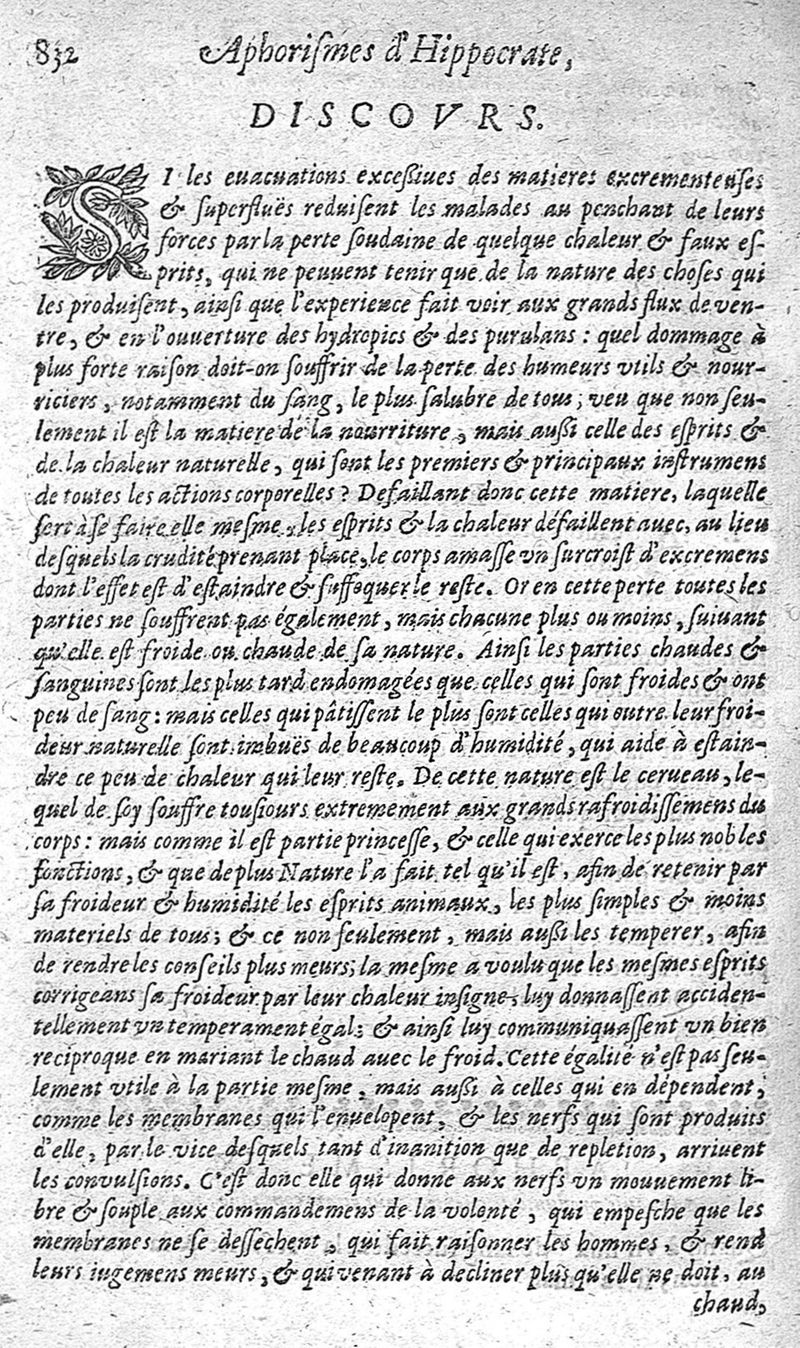 832 Aphoriſmes d'Hippocrate,
DISCOVRS.
SI les euacuations exceßiues des matieres excrementeuſes
& ſuperfluës reduiſent les malades au penchant de leurs
forces par la perte ſoudaine de quelque chaleur & faux eſ-
prits, qui ne peuuent tenir que de la nature des choſes qui
les produiſent, ainſi que l'experience fait voir aux grands flux de ven-
tre, & en l'ouuerture des hydropics & des purulans : quel dommage à
plus forte raiſon doit-on ſouffrir de la perte des humeurs vtils & nour-
riciers, notamment du ſang, le plus ſalubre de tous ; veu que non ſeu-
lement il eſt la matiere de la nourriture, mais außi celle des eſprits &
de la chaleur naturelle, qui ſont les premiers & principaux inſtrumens
de toutes les actions corporelles ? Defaillant donc cette matiere, laquelle
ſert à ſe faire elle meſme, les eſprits & la chaleur défaillent auec, au lieu
deſquels la crudité prenant place, le corps amaſſe vn ſurcroiſt d'excremens
dont l'effet eſt d'eſtaindre & ſuffoquer le reſte. Or en cette perte toutes les
parties ne ſouffrent pas également, mais chacune plus ou moins, ſuiuant
qu'elle eſt froide ou chaude de ſa nature. Ainſi les parties chaudes &
ſanguines ſont les plus tard endomagées que celles qui ſont froides & ont
peu de ſang : mais celles qui pâtiſſent le plus ſont celles qui outre leur froi-
deur naturelle ſont imbuës de beaucoup d'humidité, qui aide à eſtain-
dre ce peu de chaleur qui leur reſte. De cette nature eſt le cerueau, le-
quel de ſoy ſouffre touſiours extremement aux grands rafroidiſſemens du
corps : mais comme il eſt partie princeſſe, & celle qui exerce les plus nobles
fonctions, & que de plus Nature l'a fait tel qu'il eſt, afin de retenir par
ſa froideur & humidité les eſprits animaux, les plus ſimples & moins
materiels de tous ; & ce non ſeulement, mais außi les temperer, afin
de rendre les conſeils plus meurs; la meſme a voulu que les meſmes eſprits
corrigeans ſa froideur par leur chaleur inſigne, luy donnaſſent acciden-
tellement vn temperament égal : & ainſi luy communiquaſſent vn bien
reciproque en mariant le chaud auec le froid. Cette égalité n'eſt pas ſeu-
lement vtile à la partie meſme, mais außi à celles qui en dépendent,
comme les membranes qui l'enuelopent, & les nerfs qui ſont produits
d'elle, par le vice deſquels tant d'inanition que de repletion, arriuent
les conuulſions. C'eſt donc elle qui donne aux nerfs vn mouuement li-
bre & ſouple aux commandemens de la volonté, qui empeſche que les
membranes ne ſe deſſechent, qui fait raiſonner les hommes, & rend
leurs iugemens meurs, & qui venant à decliner plus qu'elle ne doit, au
chaud,